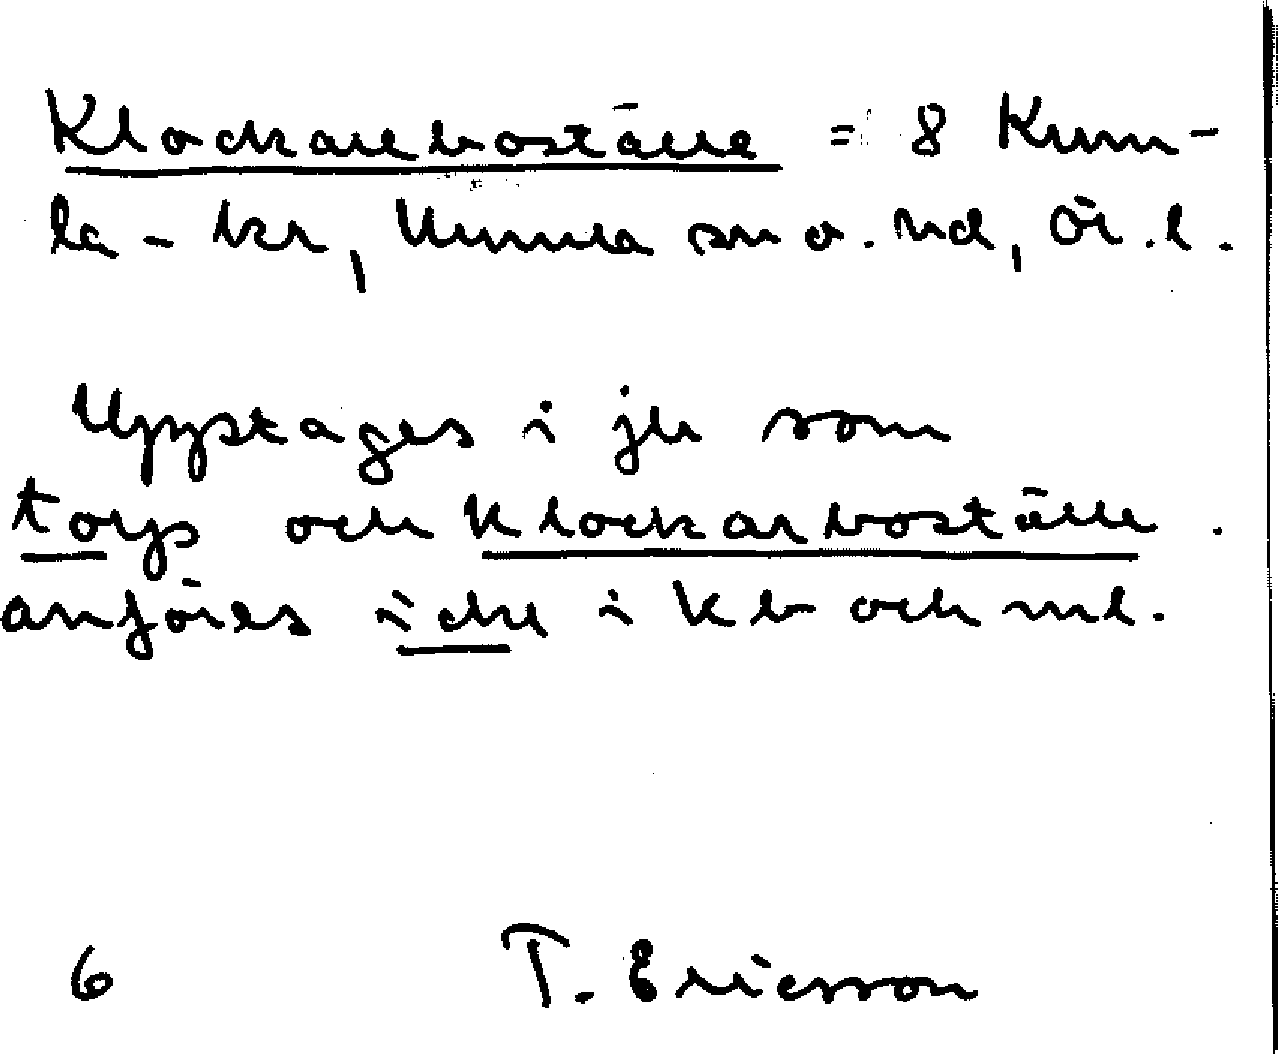 Klockareboställe = 8 Kum-
la-kr, Kumla sn o. hd, Ör. l.
Upptages i jb som
torp och Klockarboställe.
anföres icke i kb och ml.
6 T. Ericsson